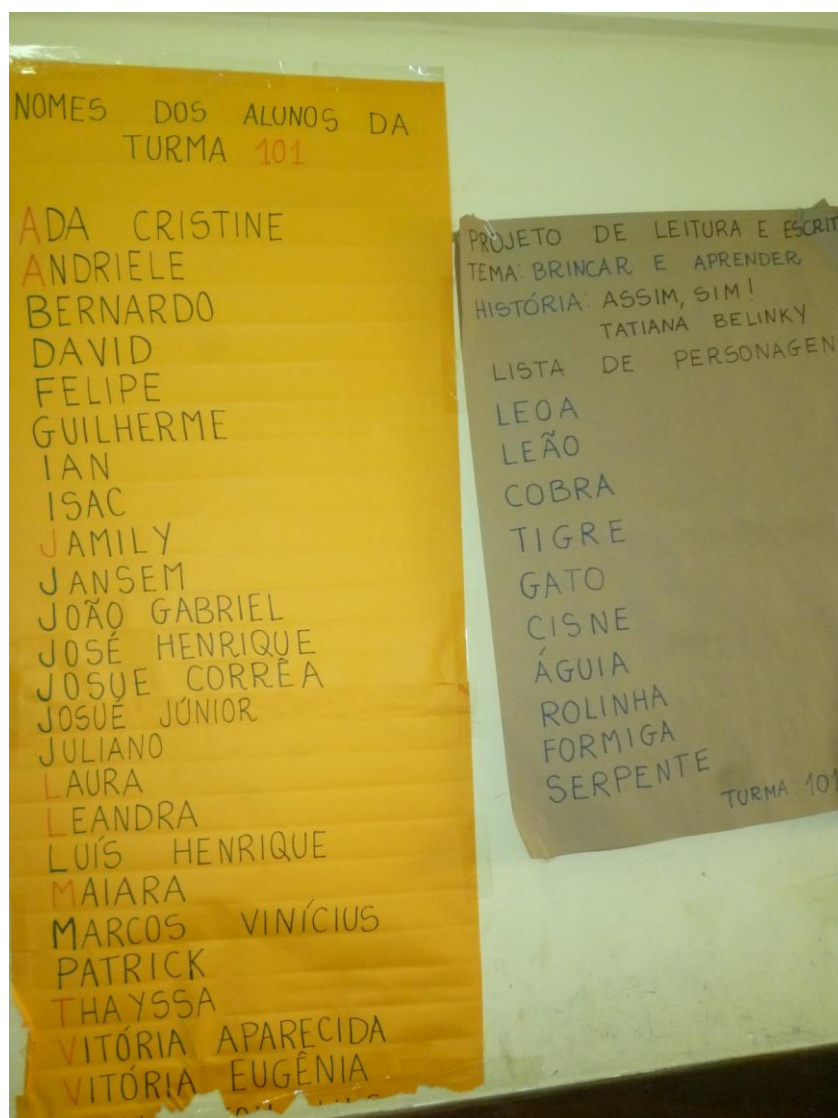 NOMES DOS ALUNOS DA
TURMA 101
ADA CRISTINE
ANDRIELE
BERNARDO
DAVID
FELIPE
GUILHERME
IAN
ISAC
JAMILY
JANSEM
JOÃO GABRIEL
JOSÉ HENRIQUE
JOSUE CORRÊA
JOSUÉ JÚNIOR
JULIANO
LAURA
LEANDRA
LUÍS HENRIQUE
MAIARA
MARCOS VINÍCIUS
PATRICK
THAYSSA
VITÓRIA APARECIDA
VITÓRIA EUGÊNIA
PROJETO DE LEITURA E ESCRIT
TEMA: BRINCAR E APRENDER
HISTÓRIA: ASSIM, SIM!
TATIANA BELINKY
LISTA DE PERSONAGEN
LEOA
LEÃO
COBRA
TIGRE
GATO
CISNE
ÁGUIA
ROLINHA
FORMIGA
SERPENTE
TURMA: 101